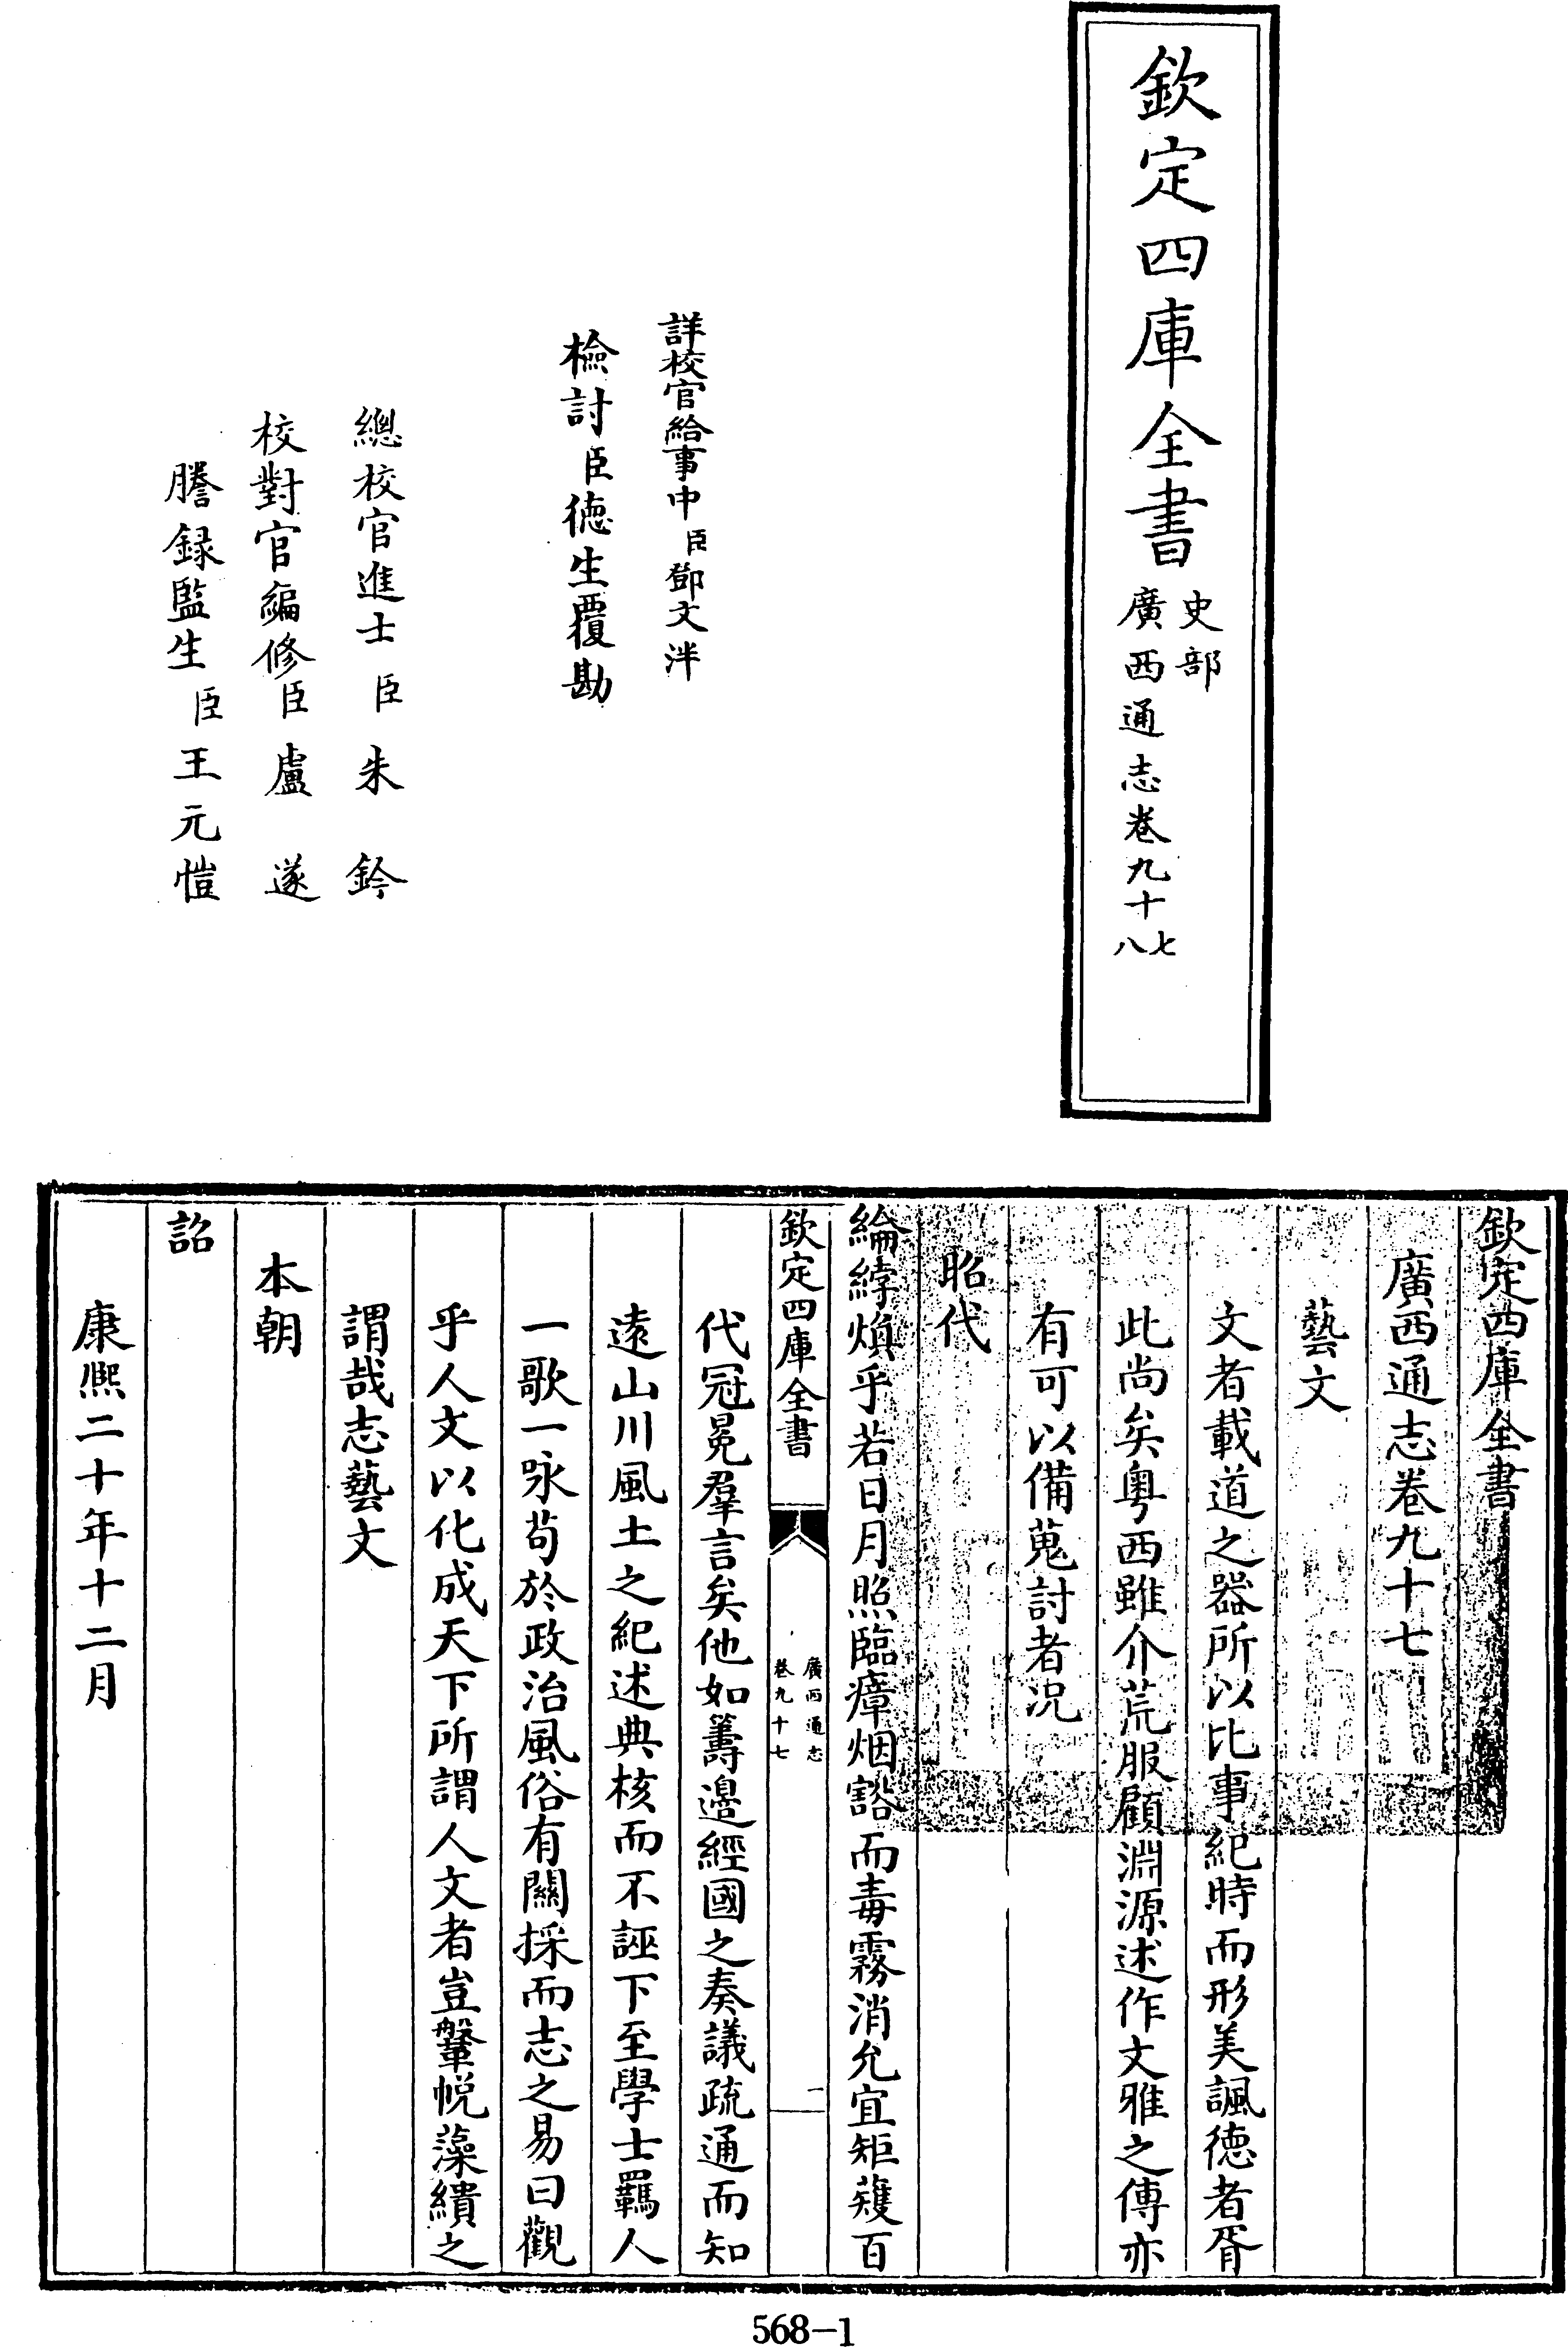 欽定四庫全書
史部
廣西通志卷九十七
八
詳校官給事中臣鄧文泮
檢討臣德生覆勘
總校官進士臣朱鈐
校對官編修臣盧遂
謄録監生臣王元愷
欽定四庫全書
廣西通志卷九十七
藝文
文者載道之器所以比事紀時而形美諷徳者胥
此尚矣粤西雖介荒服顧淵源述作文雅之傳亦
有可以備蒐討者况
昭代
綸綍煥乎若日月照臨瘴烟豁而毒霧消允宜矩矱百
欽定四庫全書
廣西通志
卷九十七
一
代冠冕羣言矣他如籌邊經國之奏議疏通而知
遠山川風土之紀述典核而不誣下至學士羈人
一歌一咏苟於政治風俗有關採而志之易曰觀
乎人文以化成天下所謂人文者豈鞶帨藻繢之
謂哉志藝文
本朝
詔
康熙二十年十二月
568-1